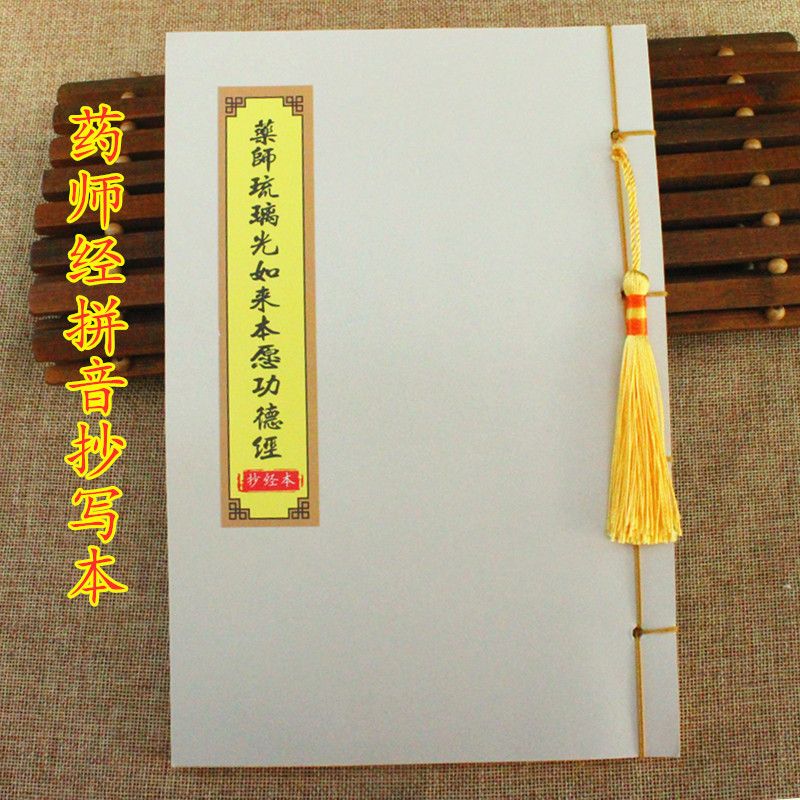 药师经拼音抄写本
薬師琉璃光如来本愿功德經
抄经本